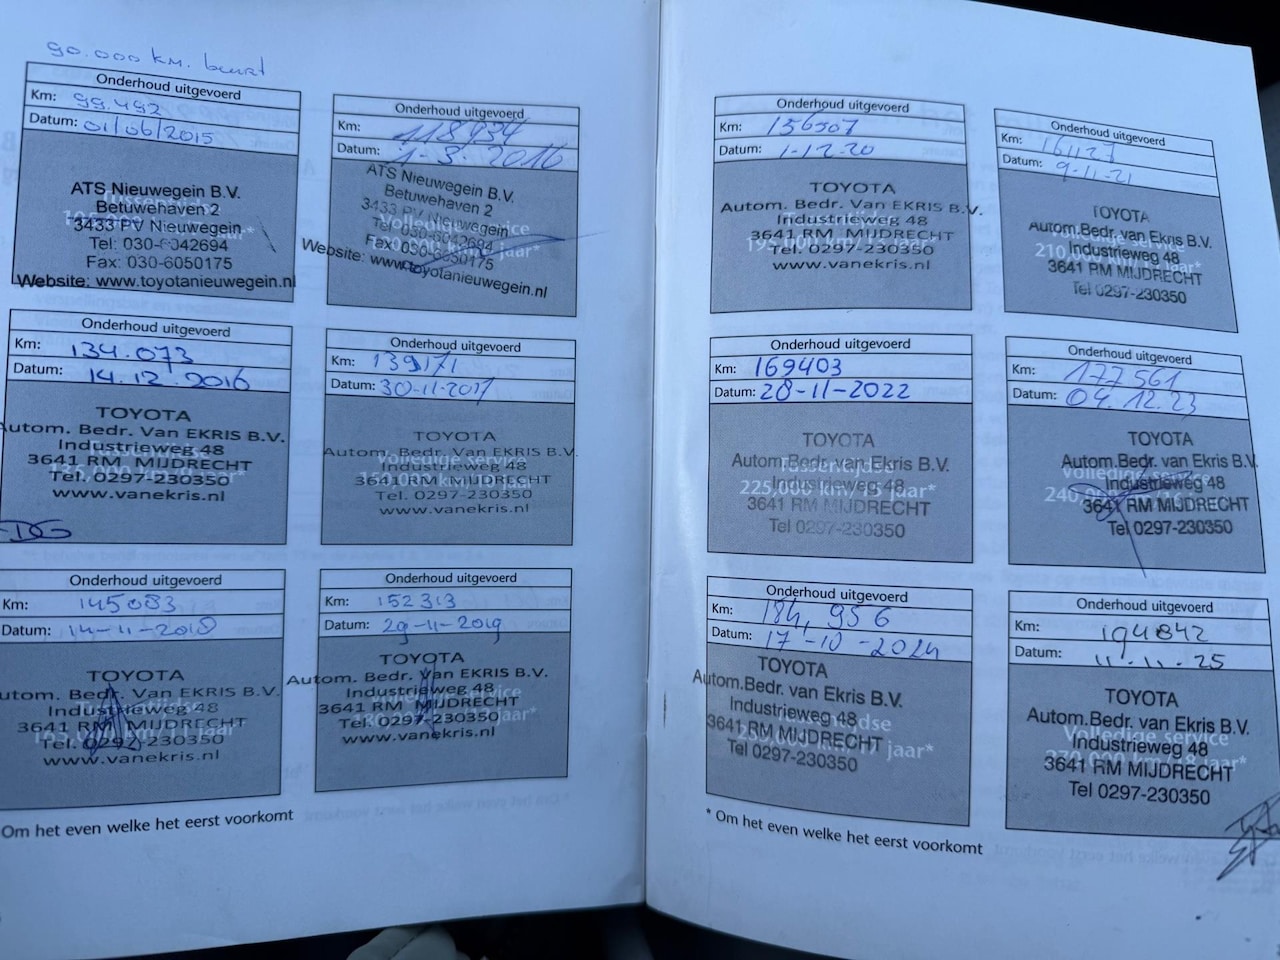 90.000 km. beurt
Onderhoud uitgevoerd
Km: 99.492
Datum: 01/06/2015
Tussentijdse
105,000 km/7 jaar*
ATS Nieuwegein B.V.
Betuwehaven 2
3433 PV Nieuwegein
Tel: 030-6042694
Fax: 030-6050175
Website: www.toyotanieuwegein.nl
Onderhoud uitgevoerd
Km: 118934
Datum: 1-3-2016
Volledige service
ATS Nieuwegein B.V.
Betuwehaven 2
3433 PV Nieuwegein
Tel 030-6042694
Fax 030-6050175
Website: www.toyotanieuwegein.nl
Onderhoud uitgevoerd
Km: 134.073
Datum: 14.12.2016
Tussentijdse
135,000 km/9 jaar*
TOYOTA
Autom. Bedr. Van EKRIS B.V.
Industrieweg 48
3641 RM MIJDRECHT
Tel. 0297-230350
www.vanekris.nl
EDG
Onderhoud uitgevoerd
Km: 139171
Datum: 30-11-2017
Volledige service
TOYOTA
Autom. Bedr. Van EKRIS B.V.
Industrieweg 48
3641 RM MIJDRECHT
Tel. 0297-230350
www.vanekris.nl
Onderhoud uitgevoerd
Km: 145083
Datum: 14-11-2018
Tussentijdse
165,000 km/11 jaar*
TOYOTA
Autom. Bedr. Van EKRIS B.V.
Industrieweg 48
3641 RM MIJDRECHT
Tel. 0297-230350
www.vanekris.nl
Onderhoud uitgevoerd
Km: 152313
Datum: 29-11-2019
Volledige service
TOYOTA
Autom. Bedr. Van EKRIS B.V.
Industrieweg 48
3641 RM MIJDRECHT
Tel. 0297-230350
www.vanekris.nl
* Om het even welke het eerst voorkomt
Onderhoud uitgevoerd
Km: 156507
Datum: 1-12-20
Tussentijdse
TOYOTA
Autom. Bedr. Van EKRIS B.V.
Industrieweg 48
3641 RM MIJDRECHT
Tel. 0297-230350
www.vanekris.nl
Onderhoud uitgevoerd
Km: 161127
Datum: 9-11-21
Volledige service
TOYOTA
Autom.Bedr. van Ekris B.V.
Industrieweg 48
3641 RM MIJDRECHT
Tel 0297-230350
Onderhoud uitgevoerd
Km: 169403
Datum: 28-11-2022
Tussentijdse
225,000 km/15 jaar*
TOYOTA
Autom.Bedr. van Ekris B.V.
Industrieweg 48
3641 RM MIJDRECHT
Tel 0297-230350
Onderhoud uitgevoerd
Km: 177561
Datum: 04.12.23
Volledige service
TOYOTA
Autom.Bedr. van Ekris B.V.
Industrieweg 48
3641 RM MIJDRECHT
Tel 0297-230350
Onderhoud uitgevoerd
Km: 184,956
Datum: 17-10-2024
Tussentijdse
TOYOTA
Autom.Bedr. van Ekris B.V.
Industrieweg 48
3641 RM MIJDRECHT
Tel 0297-230350
Onderhoud uitgevoerd
Km: 194842
Datum: 11-11-25
Volledige service
270,000 km/18 jaar*
TOYOTA
Autom.Bedr. van Ekris B.V.
Industrieweg 48
3641 RM MIJDRECHT
Tel 0297-230350
* Om het even welke het eerst voorkomt